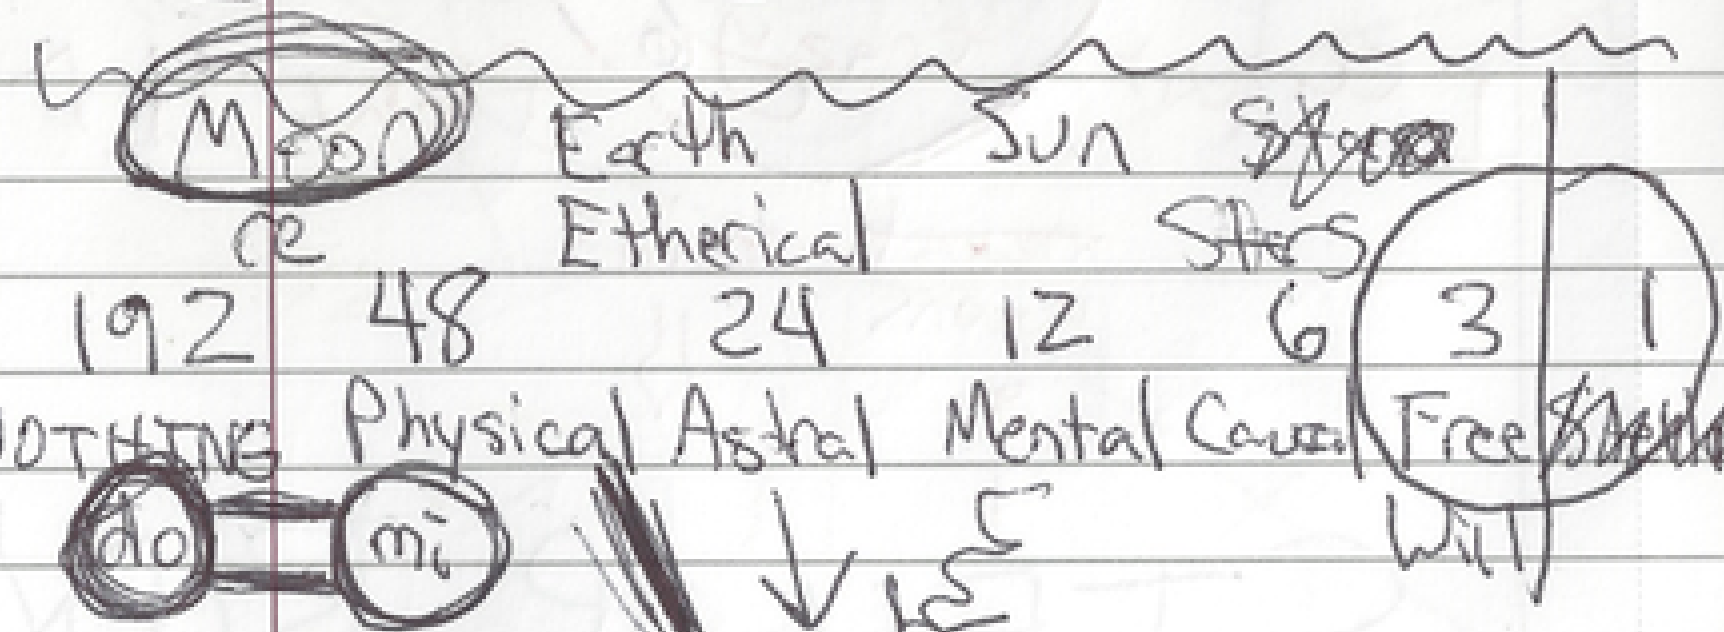 Moon Earth Sun
re Etherical Stars
192 48 24 12 6 3 1
NOTHING Physical Astral Mental Causal Free
do mi Will